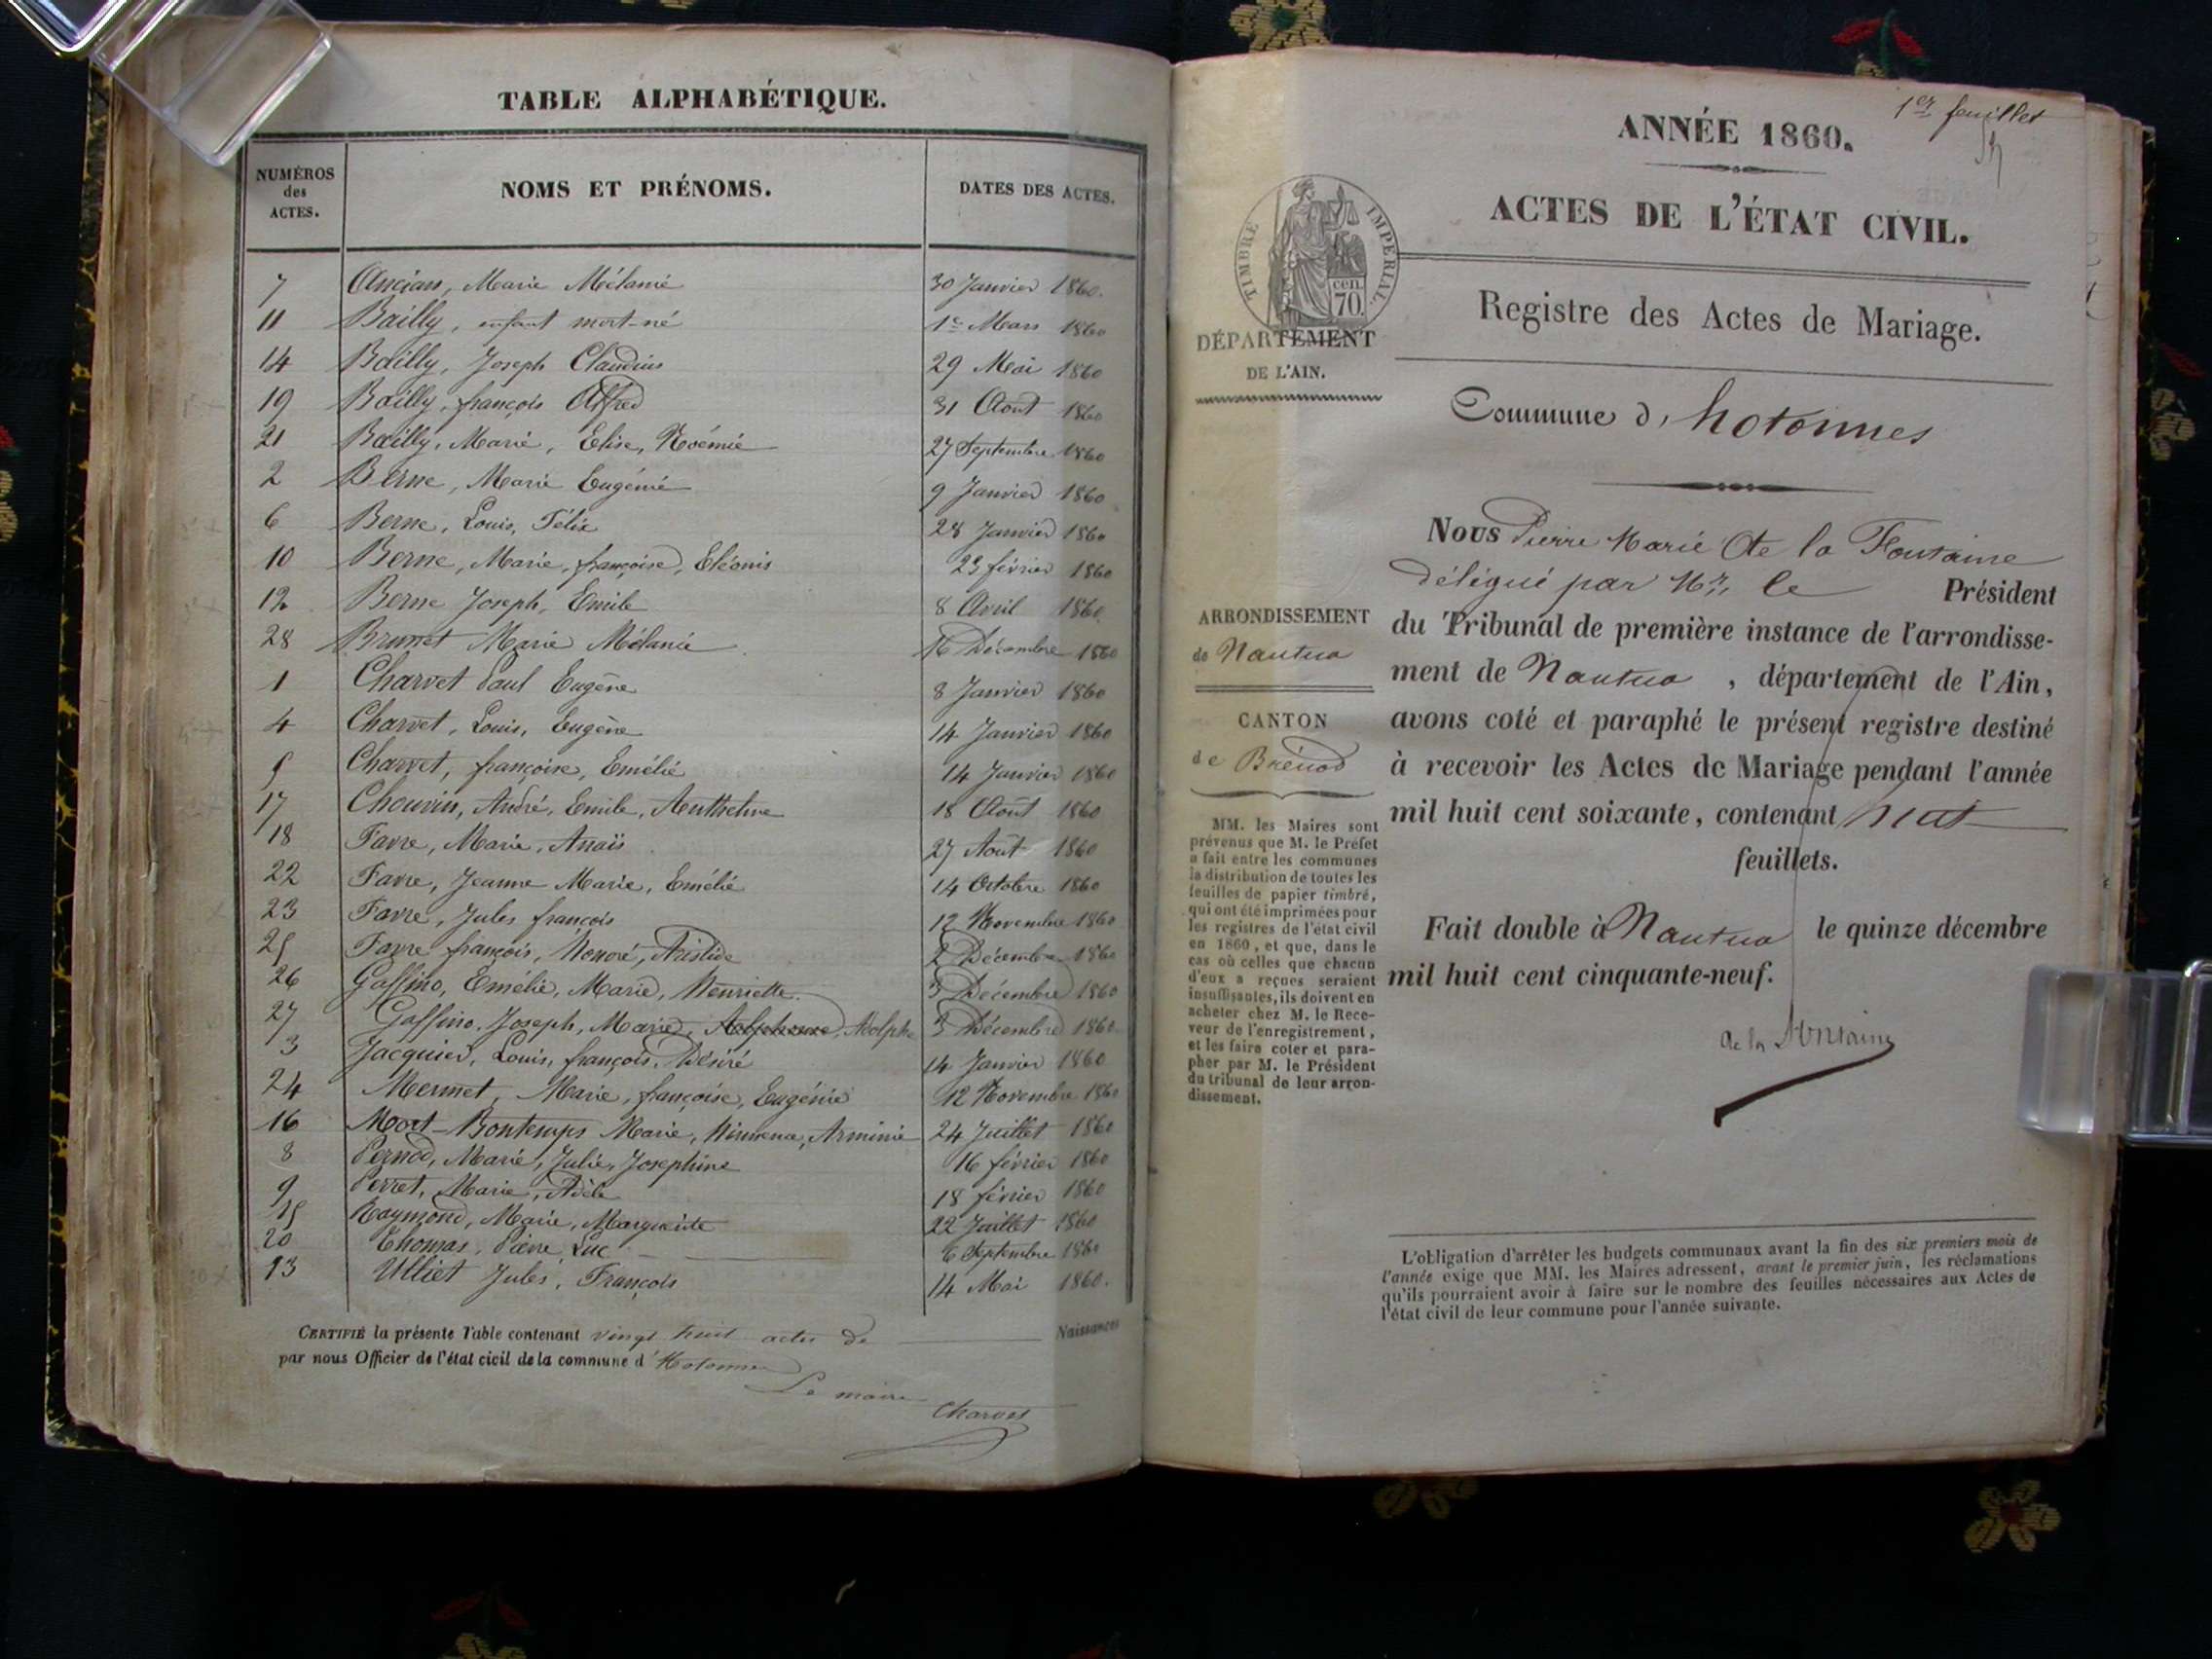 TABLE ALPHABÉTIQUE.
NUMÉROS des ACTES. NOMS ET PRÉNOMS. DATES DES ACTES.
7 Ancian, Marie Mélanie 30 Janvier 1860.
11 Bailly, enfant mort-né 1er Mars 1860
14 Bailly, Joseph Claudius 29 Mai 1860
19 Bailly, françois Alfred 31 Août 1860
21 Bailly, Marie, Elise, Noémie 27 Septembre 1860
2 Berne, Marie Eugénie 9 Janvier 1860
6 Berne, Louis, Félix 28 Janvier 1860
10 Berne, Marie, françoise, Eléonis 23 février 1860
12 Berne Joseph, Emile 8 Avril 1860
28 Brunet Marie Mélanie 16 Décembre 1860
1 Charvet Paul Eugène 8 Janvier 1860
4 Charvet, Louis, Eugène 14 Janvier 1860
5 Charvet, françoise, Emélie 14 Janvier 1860
17 Chouvin, André, Emile, Anthelme 18 Août 1860
18 Favre, Marie, Anaïs 27 Août 1860
22 Favre, Jeanne Marie, Emélie 14 Octobre 1860
23 Favre, Jules françois 12 Novembre 1860
25 Favre françois, Honoré, Aristide 2 Décembre 1860
26 Gaffino, Emélie, Marie, Henriette. 3 Décembre 1860
27 Gaffino, Joseph, Marie, Adolphe 3 Décembre 1860
3 Jacquier, Louis, françois, Désiré 14 Janvier 1860
24 Mermet, Marie, françoise, Eugénie 12 Novembre 1860
16 Mort-Bontemps Marie, Arminie 24 Juillet 1860
8 Pernod, Marie, Julie, Josephine 16 février 1860
9 Perret, Marie, Adèle 18 février 1860
15 Raymond, Marie, Marguerite 22 Juillet 1860
20 Thomas, Pierre Luc 6 Septembre 1860
13 Ulliet Jules, François 14 Mai 1860.
CERTIFIÉ la présente Table contenant vingt huit actes de Naissances
par nous Officier de l'état civil de la commune d'Hotonnes
Le maire
Charvet
1er feuillet
ANNÉE 1860.
ACTES DE L'ÉTAT CIVIL.
TIMBRE IMPÉRIAL
cen.
70.
Registre des Actes de Mariage.
DÉPARTEMENT
DE L'AIN.
Commune d'hotonnes
Nous Pierre Marie de la Fontaine
délégué par Mr. le Président
du Tribunal de première instance de l'arrondisse-
ment de Nantua, département de l'Ain,
avons coté et paraphé le présent registre destiné
à recevoir les Actes de Mariage pendant l'année
mil huit cent soixante, contenant huit
feuillets.
Fait double à Nantua le quinze décembre
mil huit cent cinquante-neuf.
de la Fontaine
ARRONDISSEMENT
de Nantua
CANTON
de Brénod
MM. les Maires sont
prévenus que M. le Préfet
a fait entre les communes
la distribution de toutes les
feuilles de papier timbré,
qui ont été imprimées pour
les registres de l'état civil
en 1860, et que, dans le
cas où celles que chacun
d'eux a reçues seraient
insuffisantes, ils doivent en
acheter chez M. le Rece-
veur de l'enregistrement,
et les faire coter et para-
pher par M. le Président
du tribunal de leur arron-
dissement.
L'obligation d'arrêter les budgets communaux avant la fin des six premiers mois de
l'année exige que MM. les Maires adressent, avant le premier juin, les réclamations
qu'ils pourraient avoir à faire sur le nombre des feuilles nécessaires aux Actes de
l'état civil de leur commune pour l'année suivante.